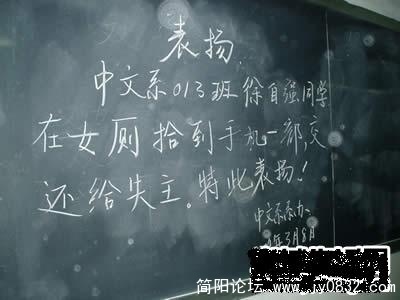 表扬
中文系013班徐自强同学
在女厕拾到手机一部,交
还给失主。特此表扬!
中文系系办
年3月8日
简阳论坛 www.jy0832.com